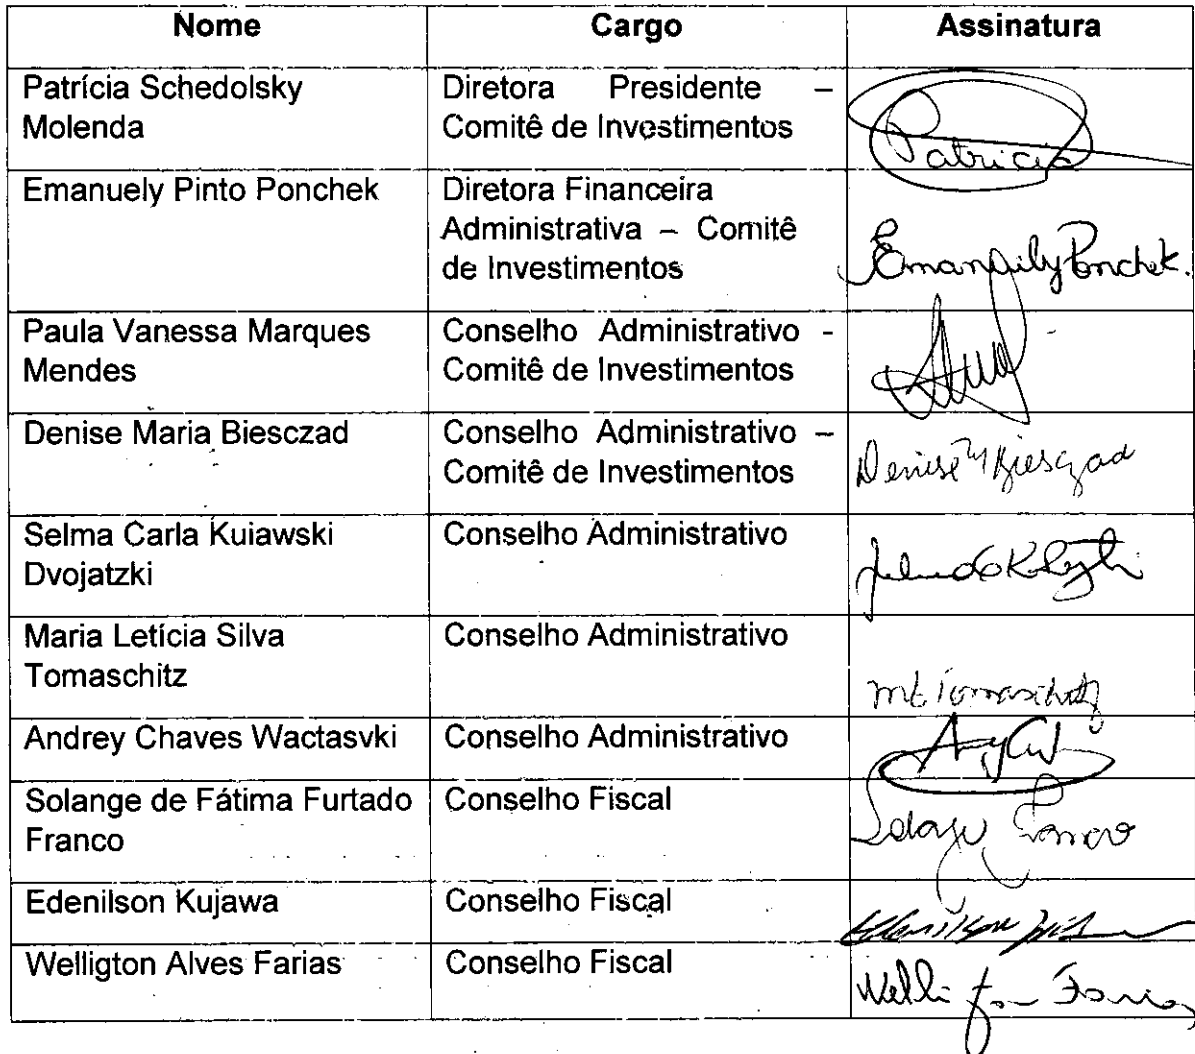 Nome Cargo Assinatura
Patrícia Schedolsky Diretora Presidente –
Molenda Comitê de Investimentos
Patricia
Emanuely Pinto Ponchek Diretora Financeira
Administrativa – Comitê
de Investimentos
Emanuely Ponchek.
Paula Vanessa Marques Conselho Administrativo -
Mendes Comitê de Investimentos
Denise Maria Biesczad Conselho Administrativo –
Comitê de Investimentos
Denise M Biesczad
Selma Carla Kuiawski Conselho Administrativo
Dvojatzki
Maria Letícia Silva Conselho Administrativo
Tomaschitz
Tomaschitz
Andrey Chaves Wactasvki Conselho Administrativo
Solange de Fátima Furtado Conselho Fiscal
Franco
Edenilson Kujawa Conselho Fiscal
Welligton Alves Farias Conselho Fiscal
Farias